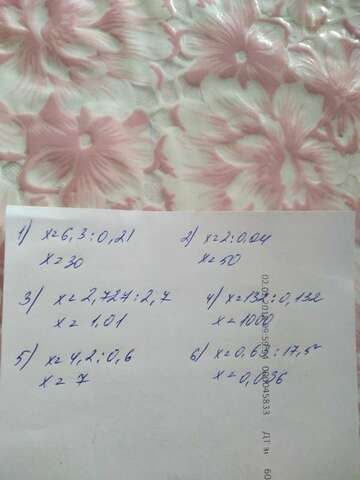 1) x=6,3:0,21
x=30
2) x=2:0,04
x=50
3) x=2,727:2,7
x=1.01
4) x=132:0,132
x=1000
5) x=4,2:0,6
x=7
6) x=0,63:17,5
x=0,036